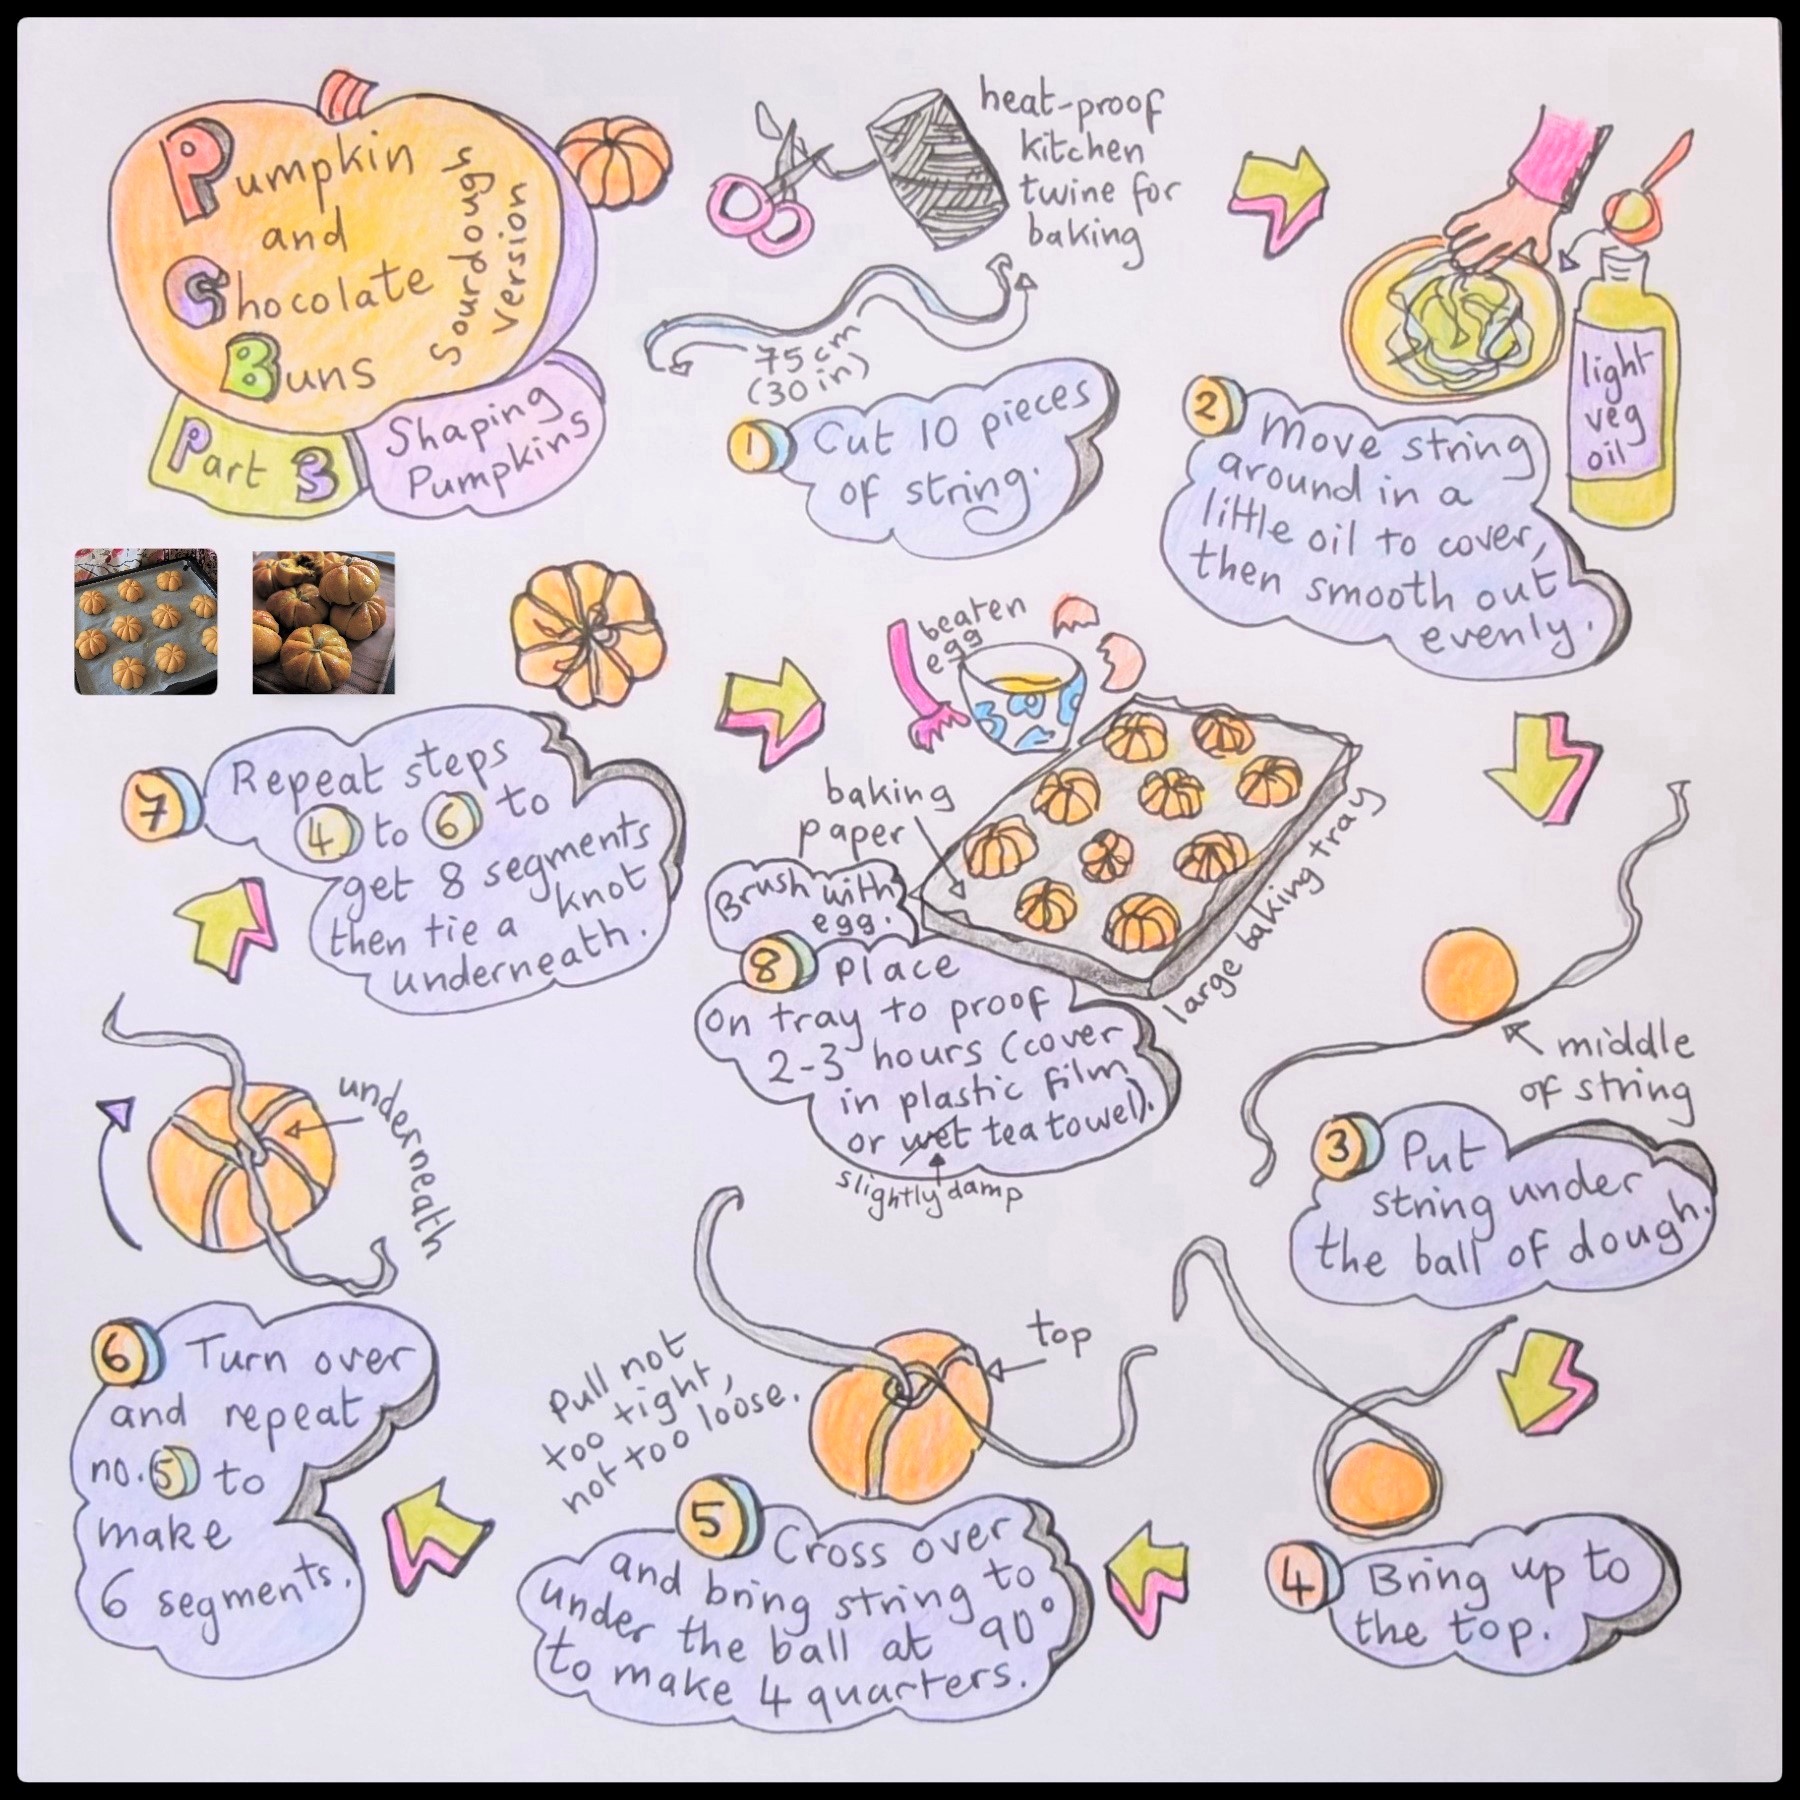 Pumpkin
and
Chocolate
Buns
Sourdough
Version
Part 3
Shaping
Pumpkins
heat-proof
kitchen
twine for
baking
75 cm
(30 in)
1 Cut 10 pieces
of string.
light
veg
oil
2 Move string
around in a
little oil to cover,
then smooth out
evenly.
middle
of string
3 Put
string under
the ball of dough.
4 Bring up to
the top.
top
Pull not
too tight,
not too loose.
5 Cross over
and bring string to
under the ball at 90°
to make 4 quarters.
underneath
6 Turn over
and repeat
no. 5 to
make
6 segments.
7 Repeat steps
4 to 6 to
get 8 segments
then tie a knot
underneath.
beaten
egg
baking
paper
large baking tray
Brush with
egg.
8 Place
on tray to proof
2-3 hours (cover
in plastic film
or wet tea towel).
slightly damp